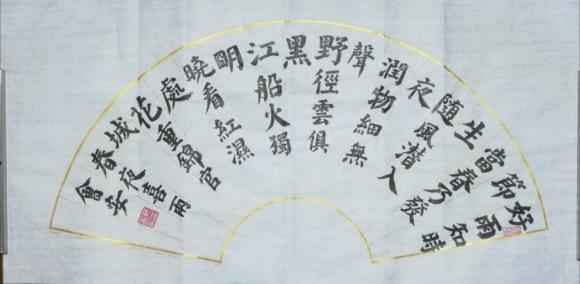 好雨知時
節
當春乃發
生
隨風潛入
夜
潤物細無
聲
野徑雲俱
黑
江船火獨
明
曉看紅濕
處
花重錦官
城
春夜喜雨
會安